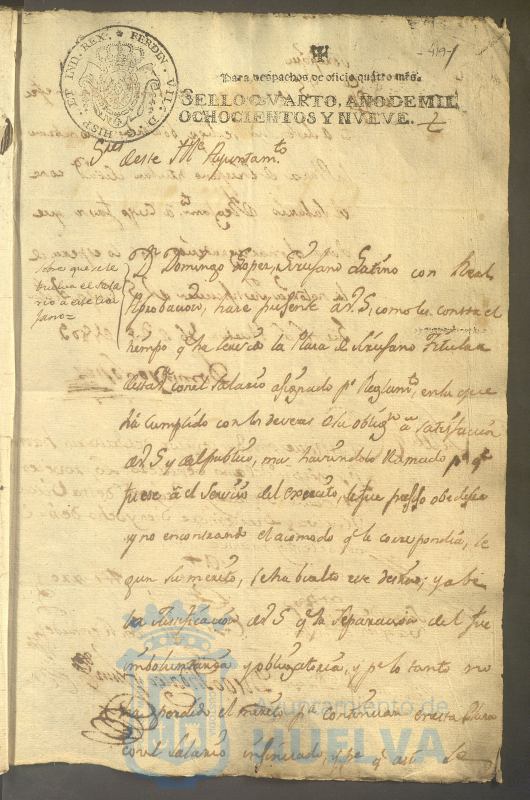 -419-
HISP. ET IND. REX. FERDIN. VII. D. G.
Para despachos de oficio quatro mrs.
SELLO QVARTO, AÑO DE MIL
OCHOCIENTOS Y NUEVE.
Sres de este Ayuntamto
Dn Domingo Lopez, Cirujano Latino con Real
Aprobacion, hace presente a V.S. como le consta el
tiempo qe ha la Plaza de Cirujano Titular
de esta con el Salario asignado pr Reglamto, en la que
ha cumplido con los deveres de la obligon a satisfaccion
de V.S. y del publico, mas haviendole llamado pa qe
fuese a el Servicio del exercito, le fue preciso obedecer
y no encontrando el acomodo qe le correspondia, se
gun su merito, se ha buelto a este destino; y
la Justificacion de V.S. qe la Separacion del fue
imboluntaria y obligatoria, y pr lo tanto no
ha perdido el merito pa continuar en esta Plaza
con el Salario
Ayuntamiento de
HUELVA